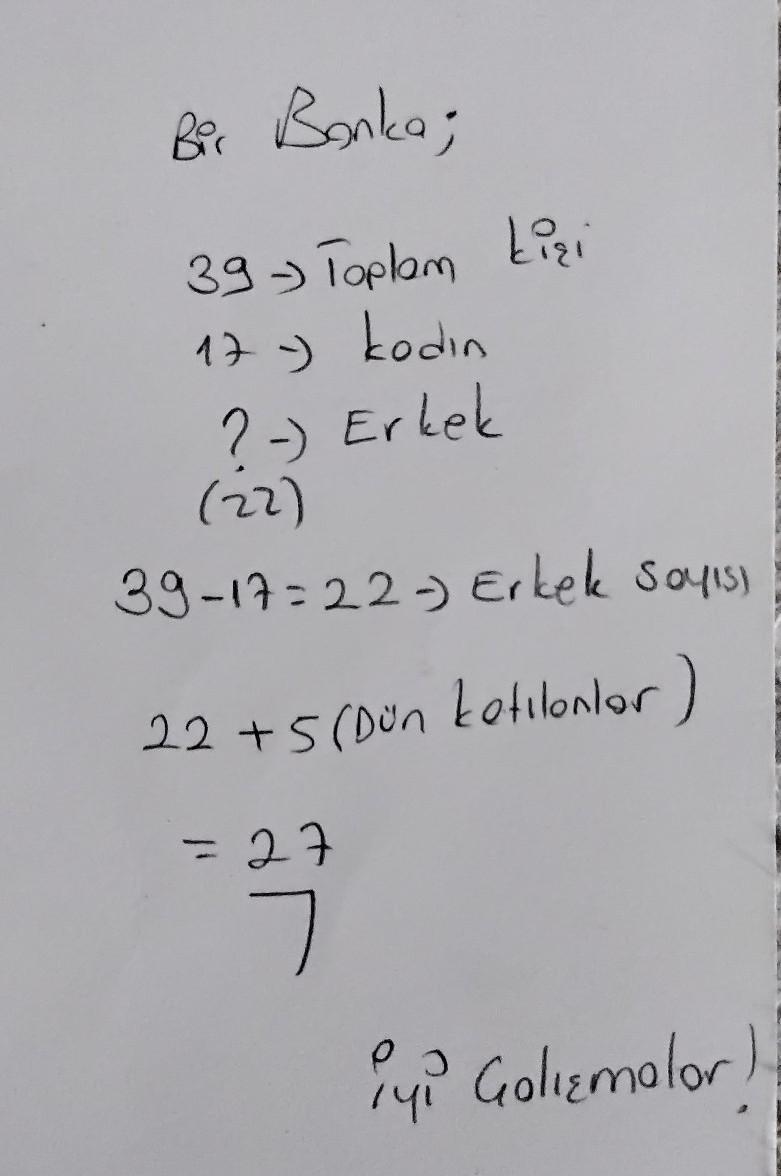 Bir Banka;
39 → Toplam kişi
17 → kadın
? → Erkek
(22)
39-17=22 → Erkek sayısı
22 + 5 (Dün katılanlar)
= 27
iyi Çalışmalar!